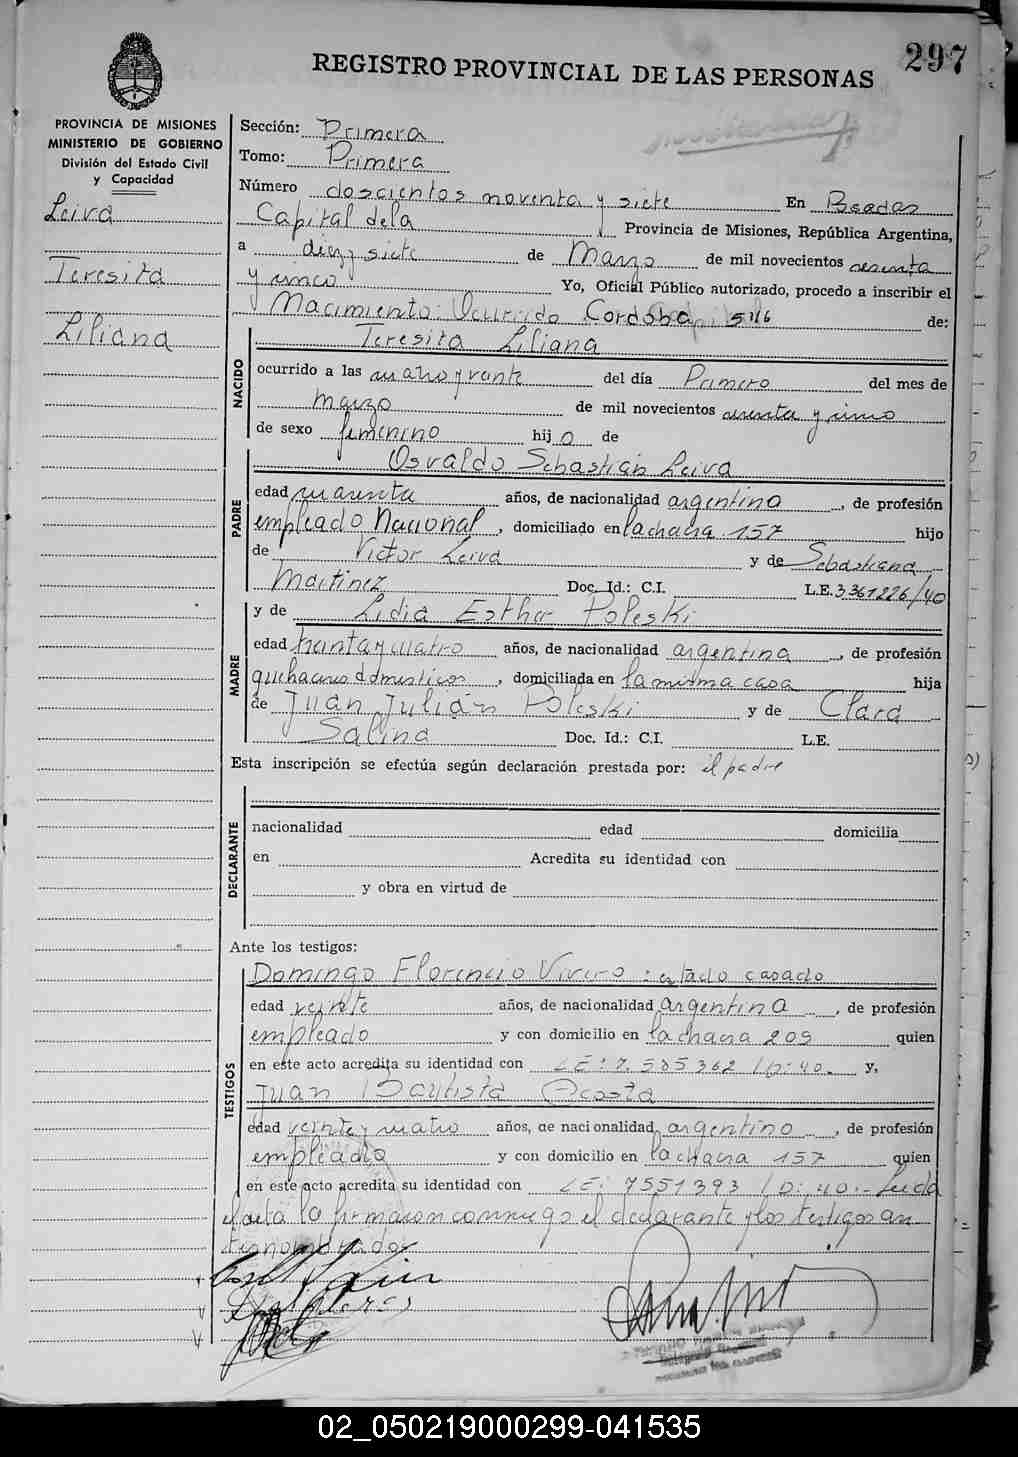 297
REGISTRO PROVINCIAL DE LAS PERSONAS
PROVINCIA DE MISIONES
MINISTERIO DE GOBIERNO
División del Estado Civil
y Capacidad
Leiva
Teresita
Liliana
Sección: Primera
Tomo: Primera
Número doscientos noventa y siete En Posadas
Capital dela Provincia de Misiones, República Argentina,
a diez y siete de Marzo de mil novecientos sesenta
y cinco Yo, Oficial Público autorizado, procedo a inscribir el
Nacimiento: Ocurrido Cordoba de:
Teresita Liliana
NACIDO
ocurrido a las cuatro y veinte del día Primero del mes de
marzo de mil novecientos sesenta y cinco
de sexo femenino hij o de
Osvaldo Sebastián Leiva
PADRE
edad cuarenta años, de nacionalidad argentina, de profesión
empleado Nacional, domiciliado en la chacra 157 hijo
de Victor Leiva y de Sebastiana
Martinez Doc. Id.: C.I. L.E. 3361226/40
y de Lidia Esther Poleski
MADRE
edad treinta y cuatro años, de nacionalidad argentina, de profesión
quehaceres domesticos, domiciliada en la misma casa hija
de Juan Julián Poleski y de Clara
Salina Doc. Id.: C.I. L.E.
Esta inscripción se efectúa según declaración prestada por: el padre
DECLARANTE
nacionalidad edad domicilia
en Acredita su identidad con
y obra en virtud de
Ante los testigos:
TESTIGOS
Domingo Florencio Vivero: estado casado
edad veinte años, de nacionalidad argentina, de profesión
empleado y con domicilio en la chacra 209 quien
en este acto acredita su identidad con LE: 7.585362 /D:40. y,
Juan Bautista Acosta
edad veinte y cuatro años, de nacionalidad argentino, de profesión
empleado y con domicilio en la chacra 157 quien
en este acto acredita su identidad con LE: 7551393 /D:40.- Leida
el acta la firmaron conmigo el declarante y los testigos an
tes nombrados
02_050219000299-041535